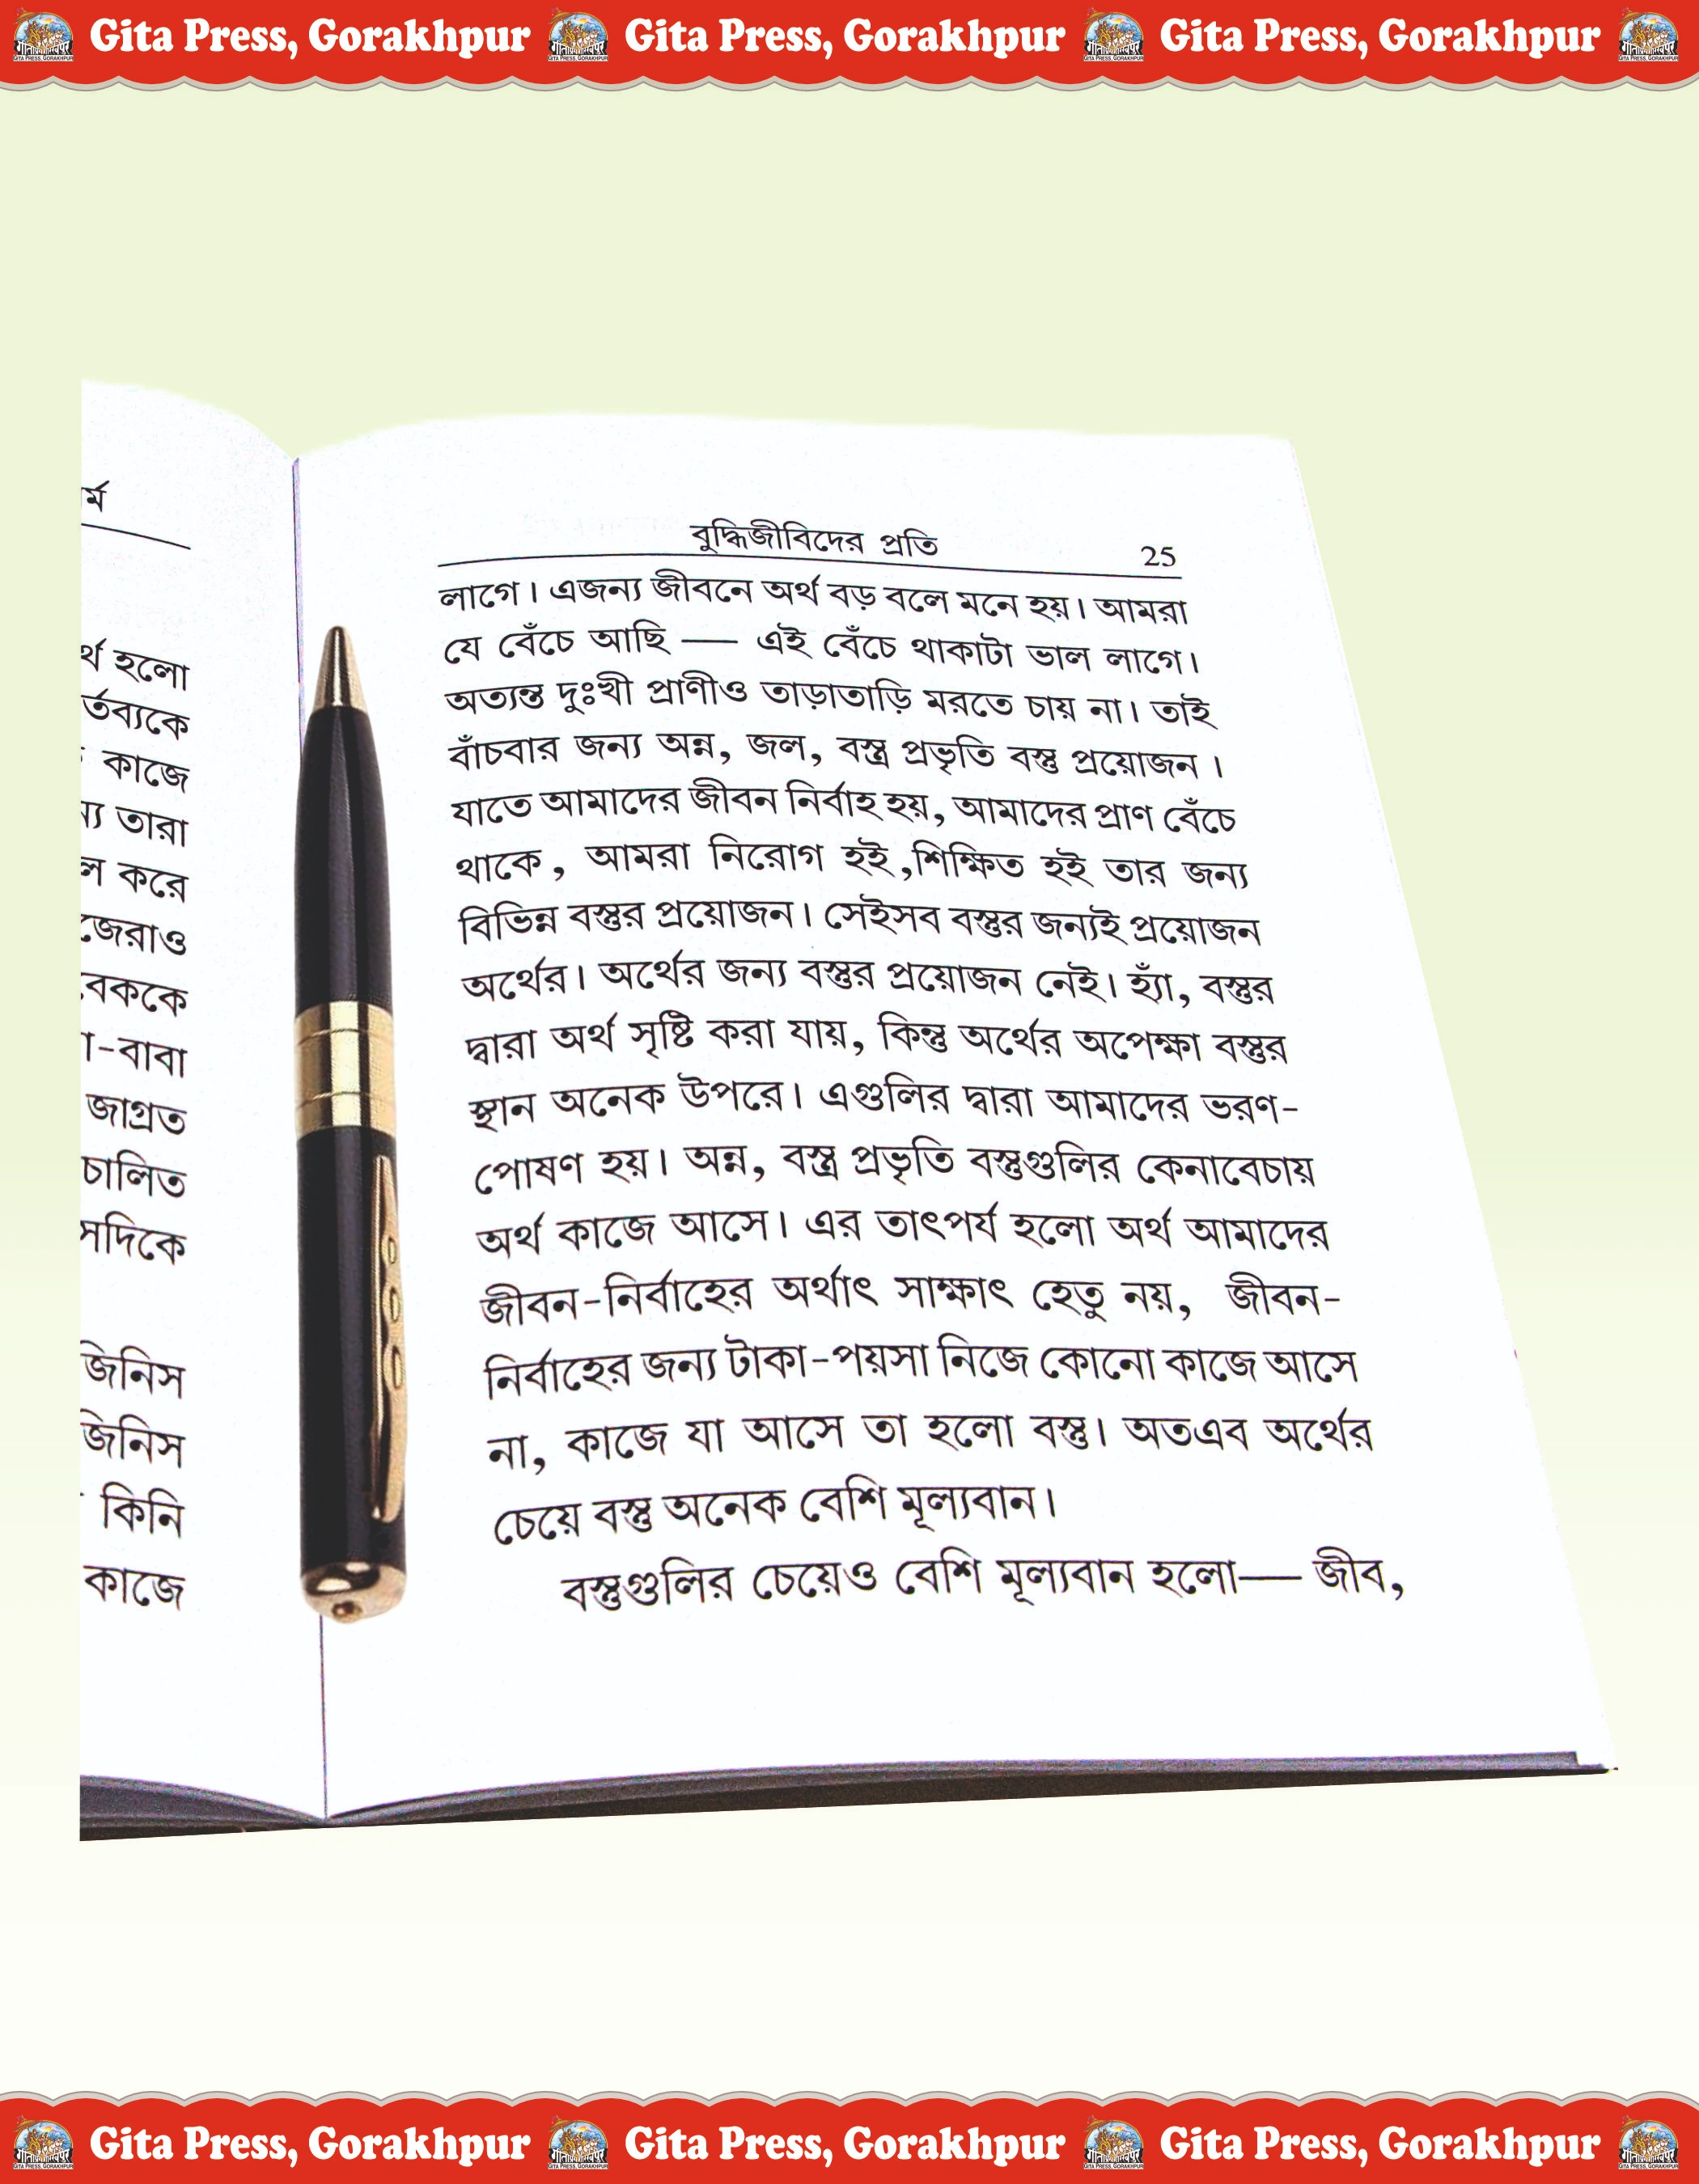 Gita Press, Gorakhpur Gita Press, Gorakhpur Gita Press, Gorakhpur
র্ম
র্থ হলো
র্তব্যকে
কাজে
তারা
ল করে
জেরাও
বেককে
া-বাবা
জাগ্রত
চালিত
সদিকে
জিনিস
জিনিস
কিনি
কাজে
বুদ্ধিজীবিদের প্রতি 25
লাগে। এজন্য জীবনে অর্থ বড় বলে মনে হয়। আমরা
যে বেঁচে আছি — এই বেঁচে থাকাটা ভাল লাগে।
অত্যন্ত দুঃখী প্রাণীও তাড়াতাড়ি মরতে চায় না। তাই
বাঁচবার জন্য অন্ন, জল, বস্ত্র প্রভৃতি বস্তু প্রয়োজন।
যাতে আমাদের জীবন নির্বাহ হয়, আমাদের প্রাণ বেঁচে
থাকে, আমরা নিরোগ হই,শিক্ষিত হই তার জন্য
বিভিন্ন বস্তুর প্রয়োজন। সেইসব বস্তুর জন্যই প্রয়োজন
অর্থের। অর্থের জন্য বস্তুর প্রয়োজন নেই। হ্যাঁ, বস্তুর
দ্বারা অর্থ সৃষ্টি করা যায়, কিন্তু অর্থের অপেক্ষা বস্তুর
স্থান অনেক উপরে। এগুলির দ্বারা আমাদের ভরণ-
পোষণ হয়। অন্ন, বস্ত্র প্রভৃতি বস্তুগুলির কেনাবেচায়
অর্থ কাজে আসে। এর তাৎপর্য হলো অর্থ আমাদের
জীবন-নির্বাহের অর্থাৎ সাক্ষাৎ হেতু নয়, জীবন-
নির্বাহের জন্য টাকা-পয়সা নিজে কোনো কাজে আসে
না, কাজে যা আসে তা হলো বস্তু। অতএব অর্থের
চেয়ে বস্তু অনেক বেশি মূল্যবান।
বস্তুগুলির চেয়েও বেশি মূল্যবান হলো— জীব,
Gita Press, Gorakhpur Gita Press, Gorakhpur Gita Press, Gorakhpur